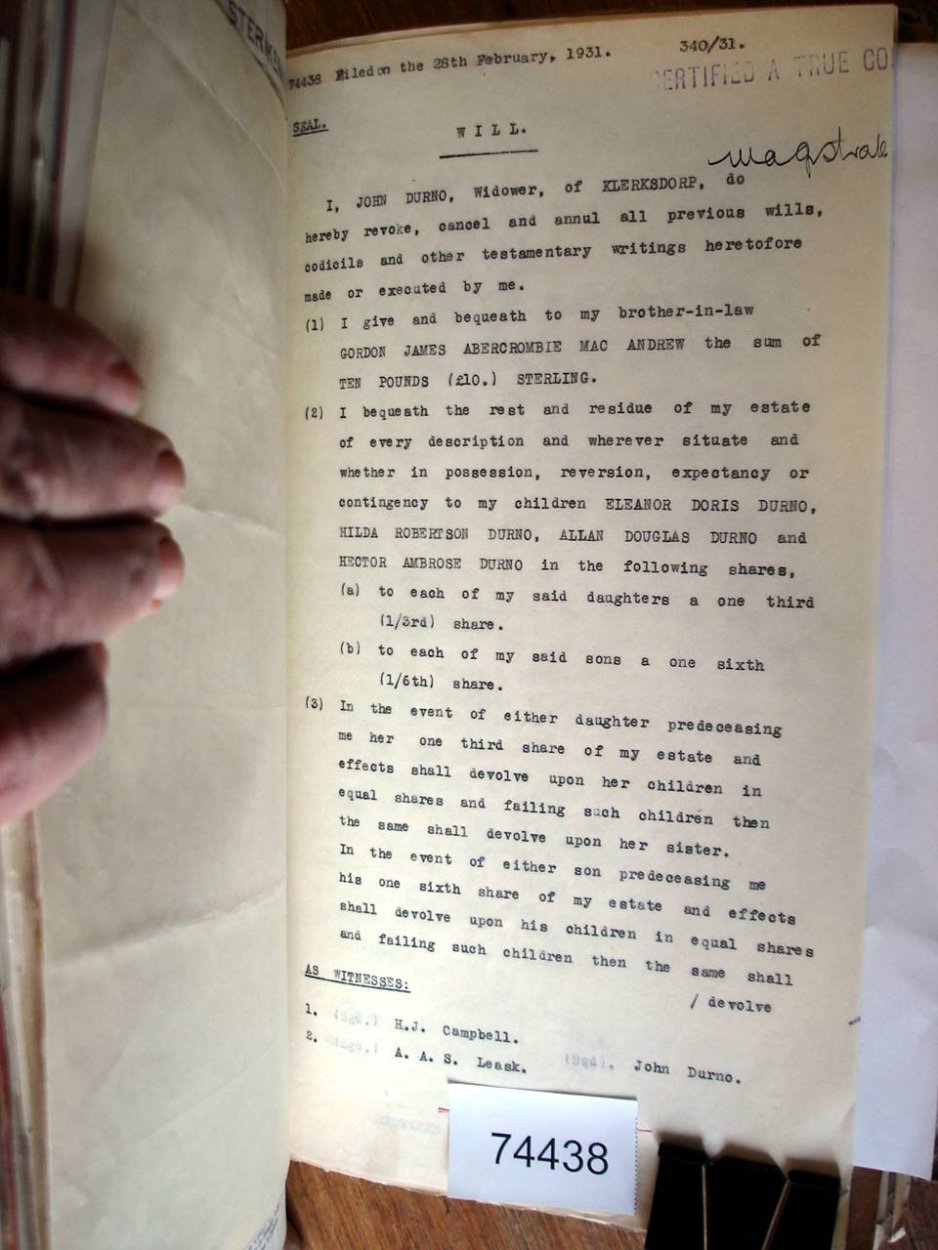 74438 Filed on the 28th February, 1931. 340/31.
CERTIFIED A TRUE CO
SEAL.
W I L L.
magstrate
I, JOHN DURNO, Widower, of KLERKSDORP, do
hereby revoke, cancel and annul all previous wills,
codicils and other testamentary writings heretofore
made or executed by me.
(1) I give and bequeath to my brother-in-law
GORDON JAMES ABERCROMBIE MAC ANDREW the sum of
TEN POUNDS (£10.) STERLING.
(2) I bequeath the rest and residue of my estate
of every description and wherever situate and
whether in possession, reversion, expectancy or
contingency to my children ELEANOR DORIS DURNO,
HILDA ROBERTSON DURNO, ALLAN DOUGLAS DURNO and
HECTOR AMBROSE DURNO in the following shares,
(a) to each of my said daughters a one third
(1/3rd) share.
(b) to each of my said sons a one sixth
(1/6th) share.
(3) In the event of either daughter predeceasing
me her one third share of my estate and
effects shall devolve upon her children in
equal shares and failing such children then
the same shall devolve upon her sister.
In the event of either son predeceasing me
his one sixth share of my estate and effects
shall devolve upon his children in equal shares
and failing such children then the same shall
/ devolve
AS WITNESSES:
1. (Sgd.) H.J. Campbell.
2. (Sgd.) A. A. S. Leask. (Sgd). John Durno.
74438